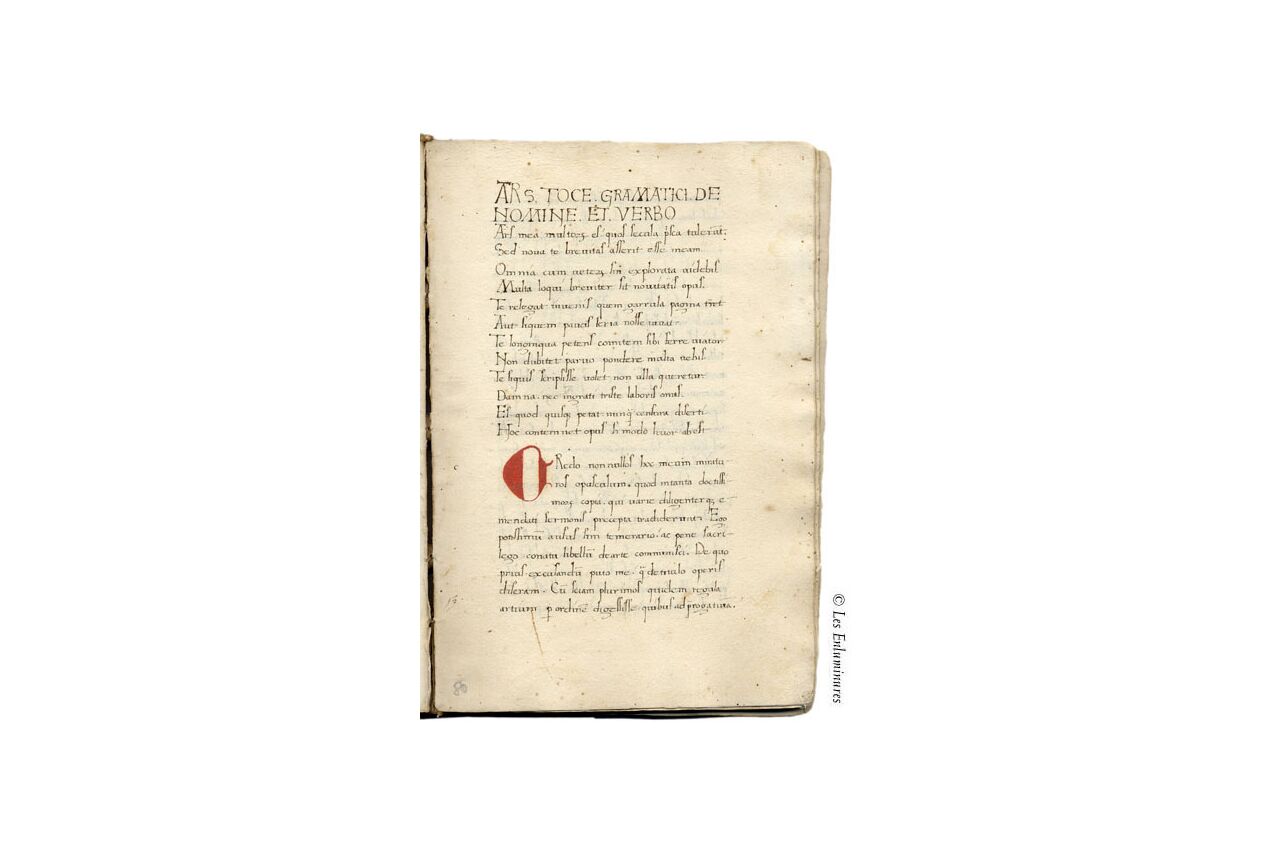 ARS. TOCE. GRAMATICI. DE
NOMINE. ET. VERBO
Ars mea multoꝝ es quos secula p̄sca tulerūt.
Sed noua te breuitas asserit esse meam
Omnia cum ueteꝝ sin̄t explorata uidebis
Multa loqui breuiter sit nouitatis opus.
Te relegat iuuenis quem garrula pagina
Aut siquem paucis seria nosse iuuat.
Te longinqua petens comitem sibi ferre uiator
Non dubitet paruo pondere multa uehis
Te siquis scripsisse uolet non ulla queretur
Damna. nec ingrati triste laboris onus.
Es quod quisqꝫ petat. nunq̄ censura diserti
Hoc contemnet opus si modo liuor abest
CRedo non nullos hoc meum miratu
ros opusculum. quod in tanta doctissi
moꝝ copia. qui uarie diligenterqꝫ e
mendati sermonis precepta tradiderunt. Ego
potissimū ausus sim temerario. ac pene sacri
lego conatu libellū de arte comminisci. De quo
prius excusandū puto me. q̄ de titulo operis
diseram. Cū sciam plurimos quidem regula
artium ꝑ ordinē digessisse quibus ad
80
© Les Enluminures